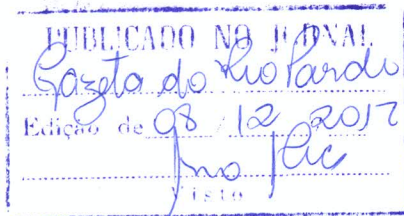 PUBLICADO NO JORNAL
Gazeta do Rio Pardo
Edição de 08 / 12 2017
Visto